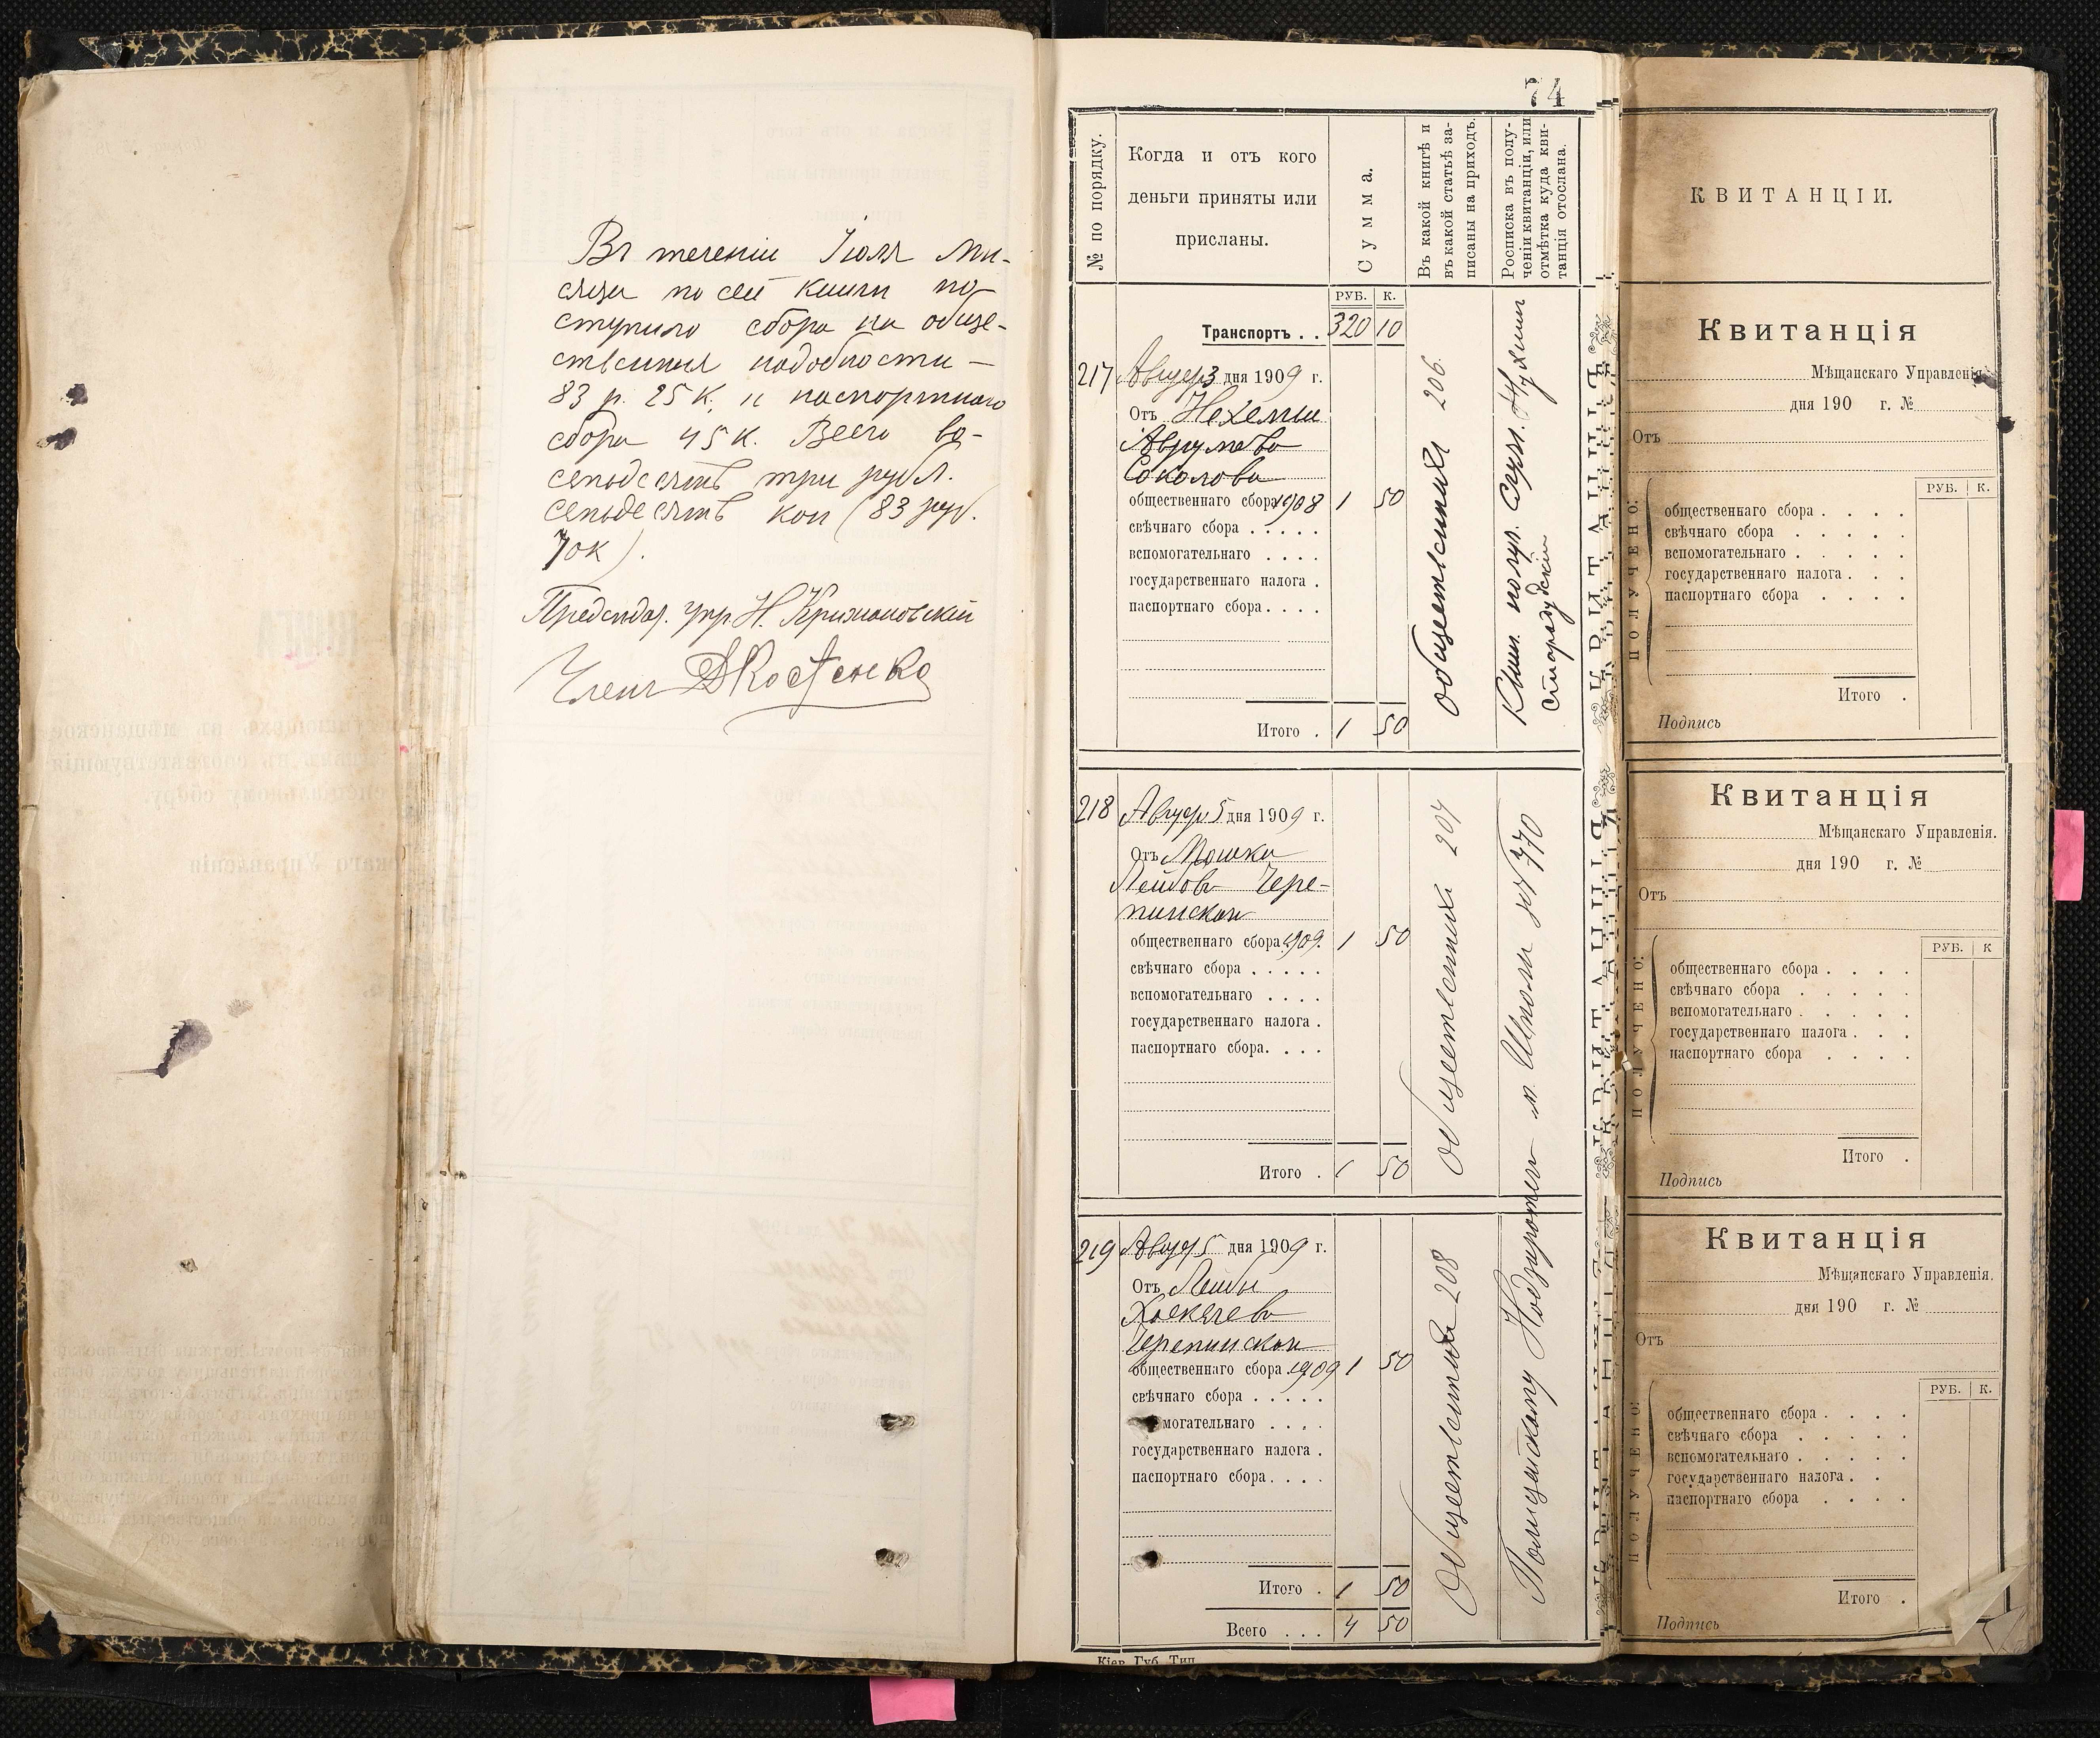 Въ теченіи Іюля мѣ-
сяца по сей книги по
ступило сбора на обще-
ственныя надобности —
83 р. 25 к. и паспортнаго
сбора 45 к. Всего во-
семьдесятъ три рубл.
семьдесятъ коп (83 руб.
70 к).
Предсѣдат. упр. Н. Крижановскій
Членъ Д Костенко
74
№ по порядку.
Когда и отъ кого
деньги приняты или
присланы.
Сумма.
Въ какой книгѣ и
въ какой статьѣ за-
писаны на приходъ.
Росписка въ полу-
ченіи квитанціи, или
отмѣтка куда кви-
танція отослана.
РУБ. К.
Транспортъ . . 320 10
217 Август 3 дня 1909 г.
Отъ Нехемии
Аврумова
Соколова
общественнаго сбора 1908 1 50
свѣчнаго сбора . . . . .
вспомогательнаго . . . .
государственнаго налога .
паспортнаго сбора . . . .
Итого . 1 50
общественныхъ 206.
Квит. получ.
218 Август 5 дня 1909 г.
Отъ Мошки
Лейбова Чере-
пинскаго
общественнаго сбора 1909. 1 50
свѣчнаго сбора . . . . .
вспомогательнаго . . . .
государственнаго налога .
паспортнаго сбора. . . .
Итого . 1 50
общественныхъ 207
219 Август 5 дня 1909 г.
Отъ Лейбы
Хаскелева
Черепинскаго
общественнаго сбора 1909 1 50
свѣчнаго сбора . . . . .
могательнаго . . . .
государственнаго налога .
паспортнаго сбора . . . .
Итого . 1 50
Всего . . . 4 50
общественныхъ 208
Полицейскому Надзирателю м. Шполы за № 770
Кіев. Губ. Тип.
КВИТАНЦІИ.
Квитанція
Мѣщанскаго Управленія
дня 190 г. №
Отъ
РУБ. К.
ПОЛУЧЕНО:
общественнаго сбора . . . .
свѣчнаго сбора . . . . .
вспомогательнаго . . . . .
государственнаго налога . . .
паспортнаго сбора . . . .
Итого .
Подпись
Квитанція
Мѣщанскаго Управленія.
дня 190 г. №
Отъ
РУБ. К
ПОЛУЧЕНО:
общественнаго сбора . . . .
свѣчнаго сбора . . . . .
вспомогательнаго . . . . .
государственнаго налога . . .
паспортнаго сбора . . . .
Итого .
Подпись
Квитанція
Мѣщанскаго Управленія.
дня 190 г. №
Отъ
РУБ. К.
ПОЛУЧЕНО:
общественнаго сбора . . . .
свѣчнаго сбора . . . . .
вспомогательнаго . . . . .
государственнаго налога . .
паспортнаго сбора . . . .
Итого .
Подпись